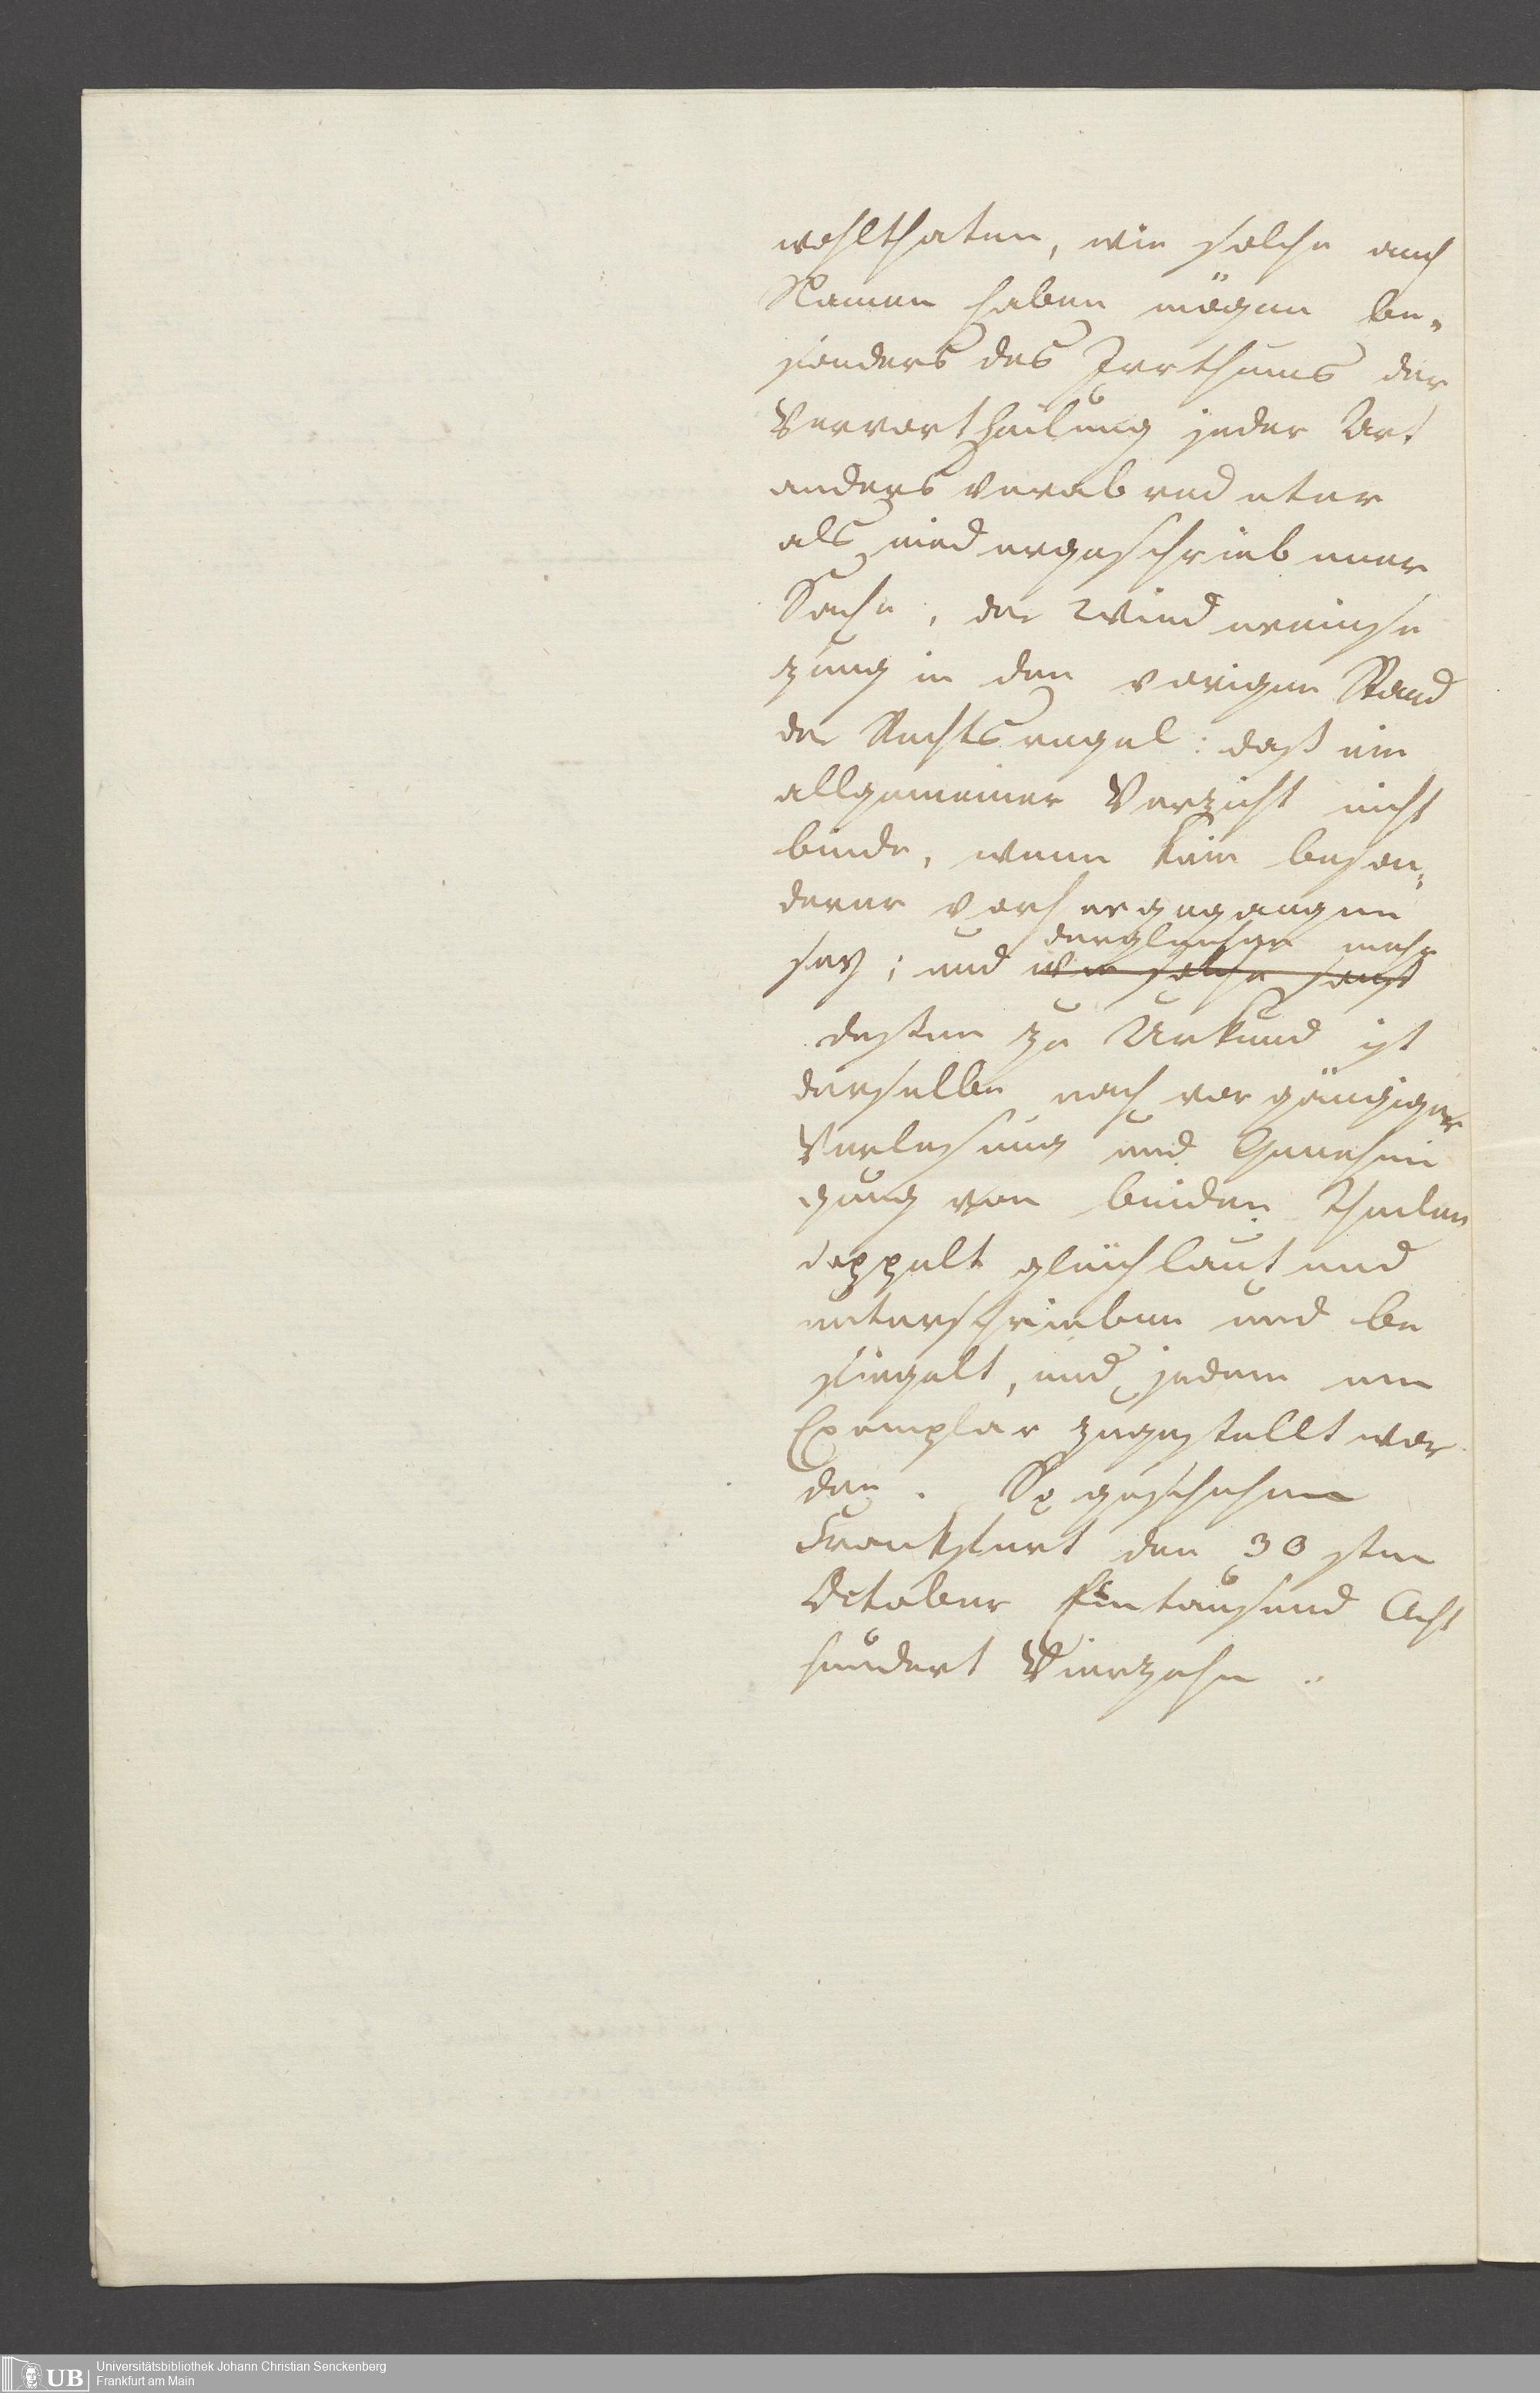 wohlthaten, wie solche auch
Namen haben mögen be„
sonders des Irrthums der
Vervortheilung jeder Art
anders verabredeter
als niedergeschriebener
Sache, der Wiedereinse
zung in den vorigen Stand
der Rechtsregel: daß ein
allgemeiner Verzicht nicht
binde, wenn kein beson„
derer vorhergegangen
dergleichen mehr
sey; und wie solche sonst
dessen zu Urkund ist
derselbe nach vorgängiger
Verlesung und Genehmi
gung von beiden Theilen
doppelt gleichlautend
unterschrieben und be
siegelt, und jedem ein
Exemplar zugestellt wor
den. So geschehen
Frankfurt den 30sten
October Eintausend Acht
hundert Vierzehn.
Universitätsbibliothek Johann Christian Senckenberg
Frankfurt am Main
UB